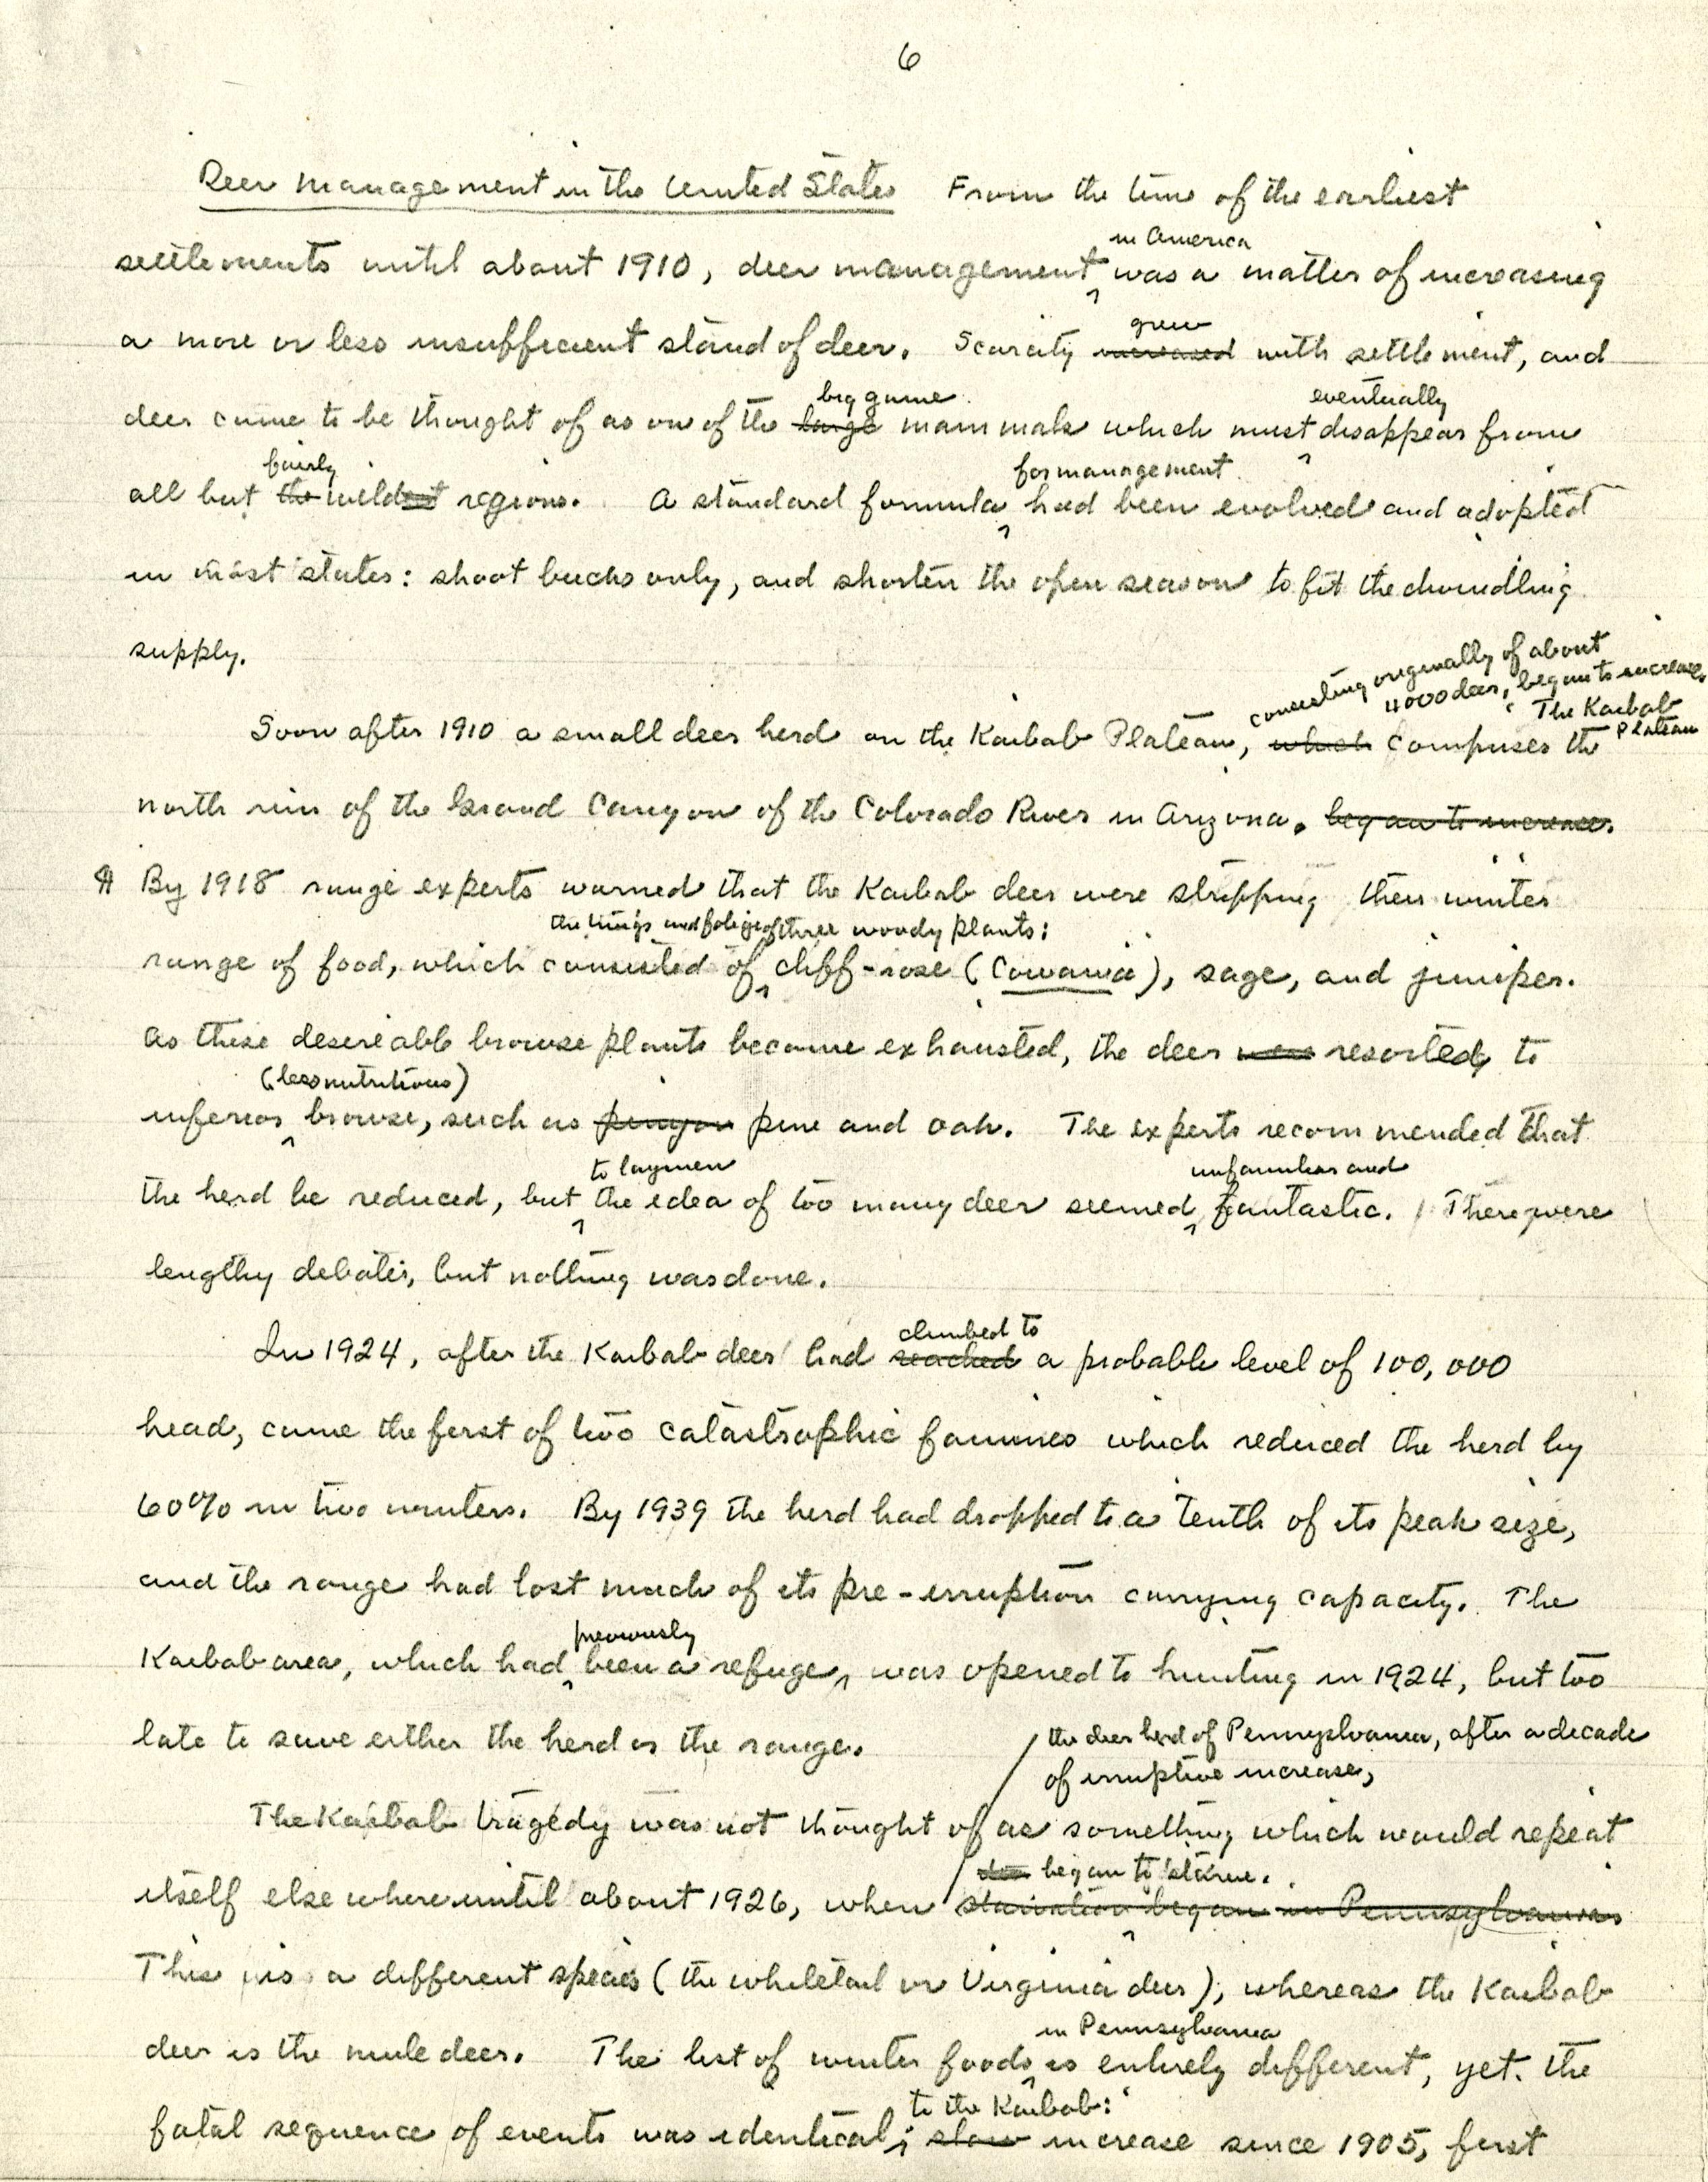 6
Deer management in the United States From the time of the earliest
in America
settlements until about 1910, deer management was a matter of increasing
grew
a more or less insufficient stand of deer. Scarcity increased with settlement, and
big game eventually
deer came to be thought of as one of the large mammals which must disappear from
fairly for management
all but the wildest regions. A standard formula had been evolved and adopted
in most states: shoot bucks only, and shorten the open season to fit the dwindling
supply.
consisting originally of about
4000 deer, began to increase.
The Kaibab
Plateau
Soon after 1910 a small deer herd on the Kaibab Plateau, which composes the
north rim of the Grand Canyon of the Colorado River in Arizona. began to increase.
¶ By 1918 range experts warned that the Kaibab deer were stripping their winter
the twigs and foliage of three woody plants:
range of food, which consisted of cliff-rose (Cowania), sage, and juniper.
As these desireable browse plants became exhausted, the deer were resorted to
(less nutritious)
inferior browse, such as pinyon pine and oak. The experts recommended that
to laymen unfamiliar and
the herd be reduced, but the idea of too many deer seemed fantastic. There were
lengthy debates, but nothing was done.
climbed to
In 1924, after the Kaibab deer had reached a probable level of 100,000
head, came the first of two catastrophic famines which reduced the herd by
60% in two winters. By 1939 the herd had dropped to a tenth of its peak size,
and the range had lost much of its pre-irruption carrying capacity. The
previously
Kaibab area, which had been a refuge, was opened to hunting in 1924, but too
late to save either the herd or the range.
the deer herd of Pennsylvania, after a decade
of irruptive increase,
The Kaibab tragedy was not thought of as something which would repeat
began to starve.
itself elsewhere until about 1926, when starvation began in Pennsylvania
This is a different species (the whitetail or Virginia deer), whereas the Kaibab
in Pennsylvania
deer is the mule deer. The list of winter foods is entirely different, yet the
to the Kaibab:
fatal sequence of events was identical; slow increase since 1905, first